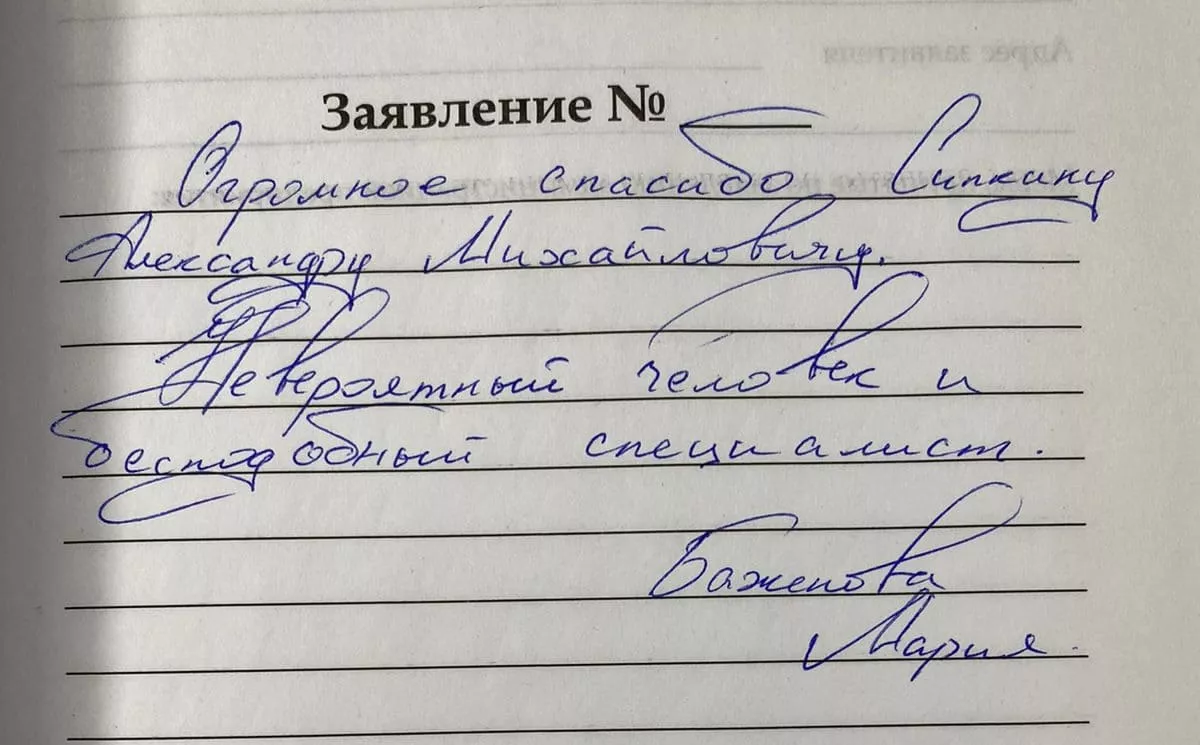 Адрес заявителя
Заявление №
Огромное спасибо Сипкину
Александру Михайловичу.
Невероятный человек и
бесподобный специалист.
Баженова
Мария.